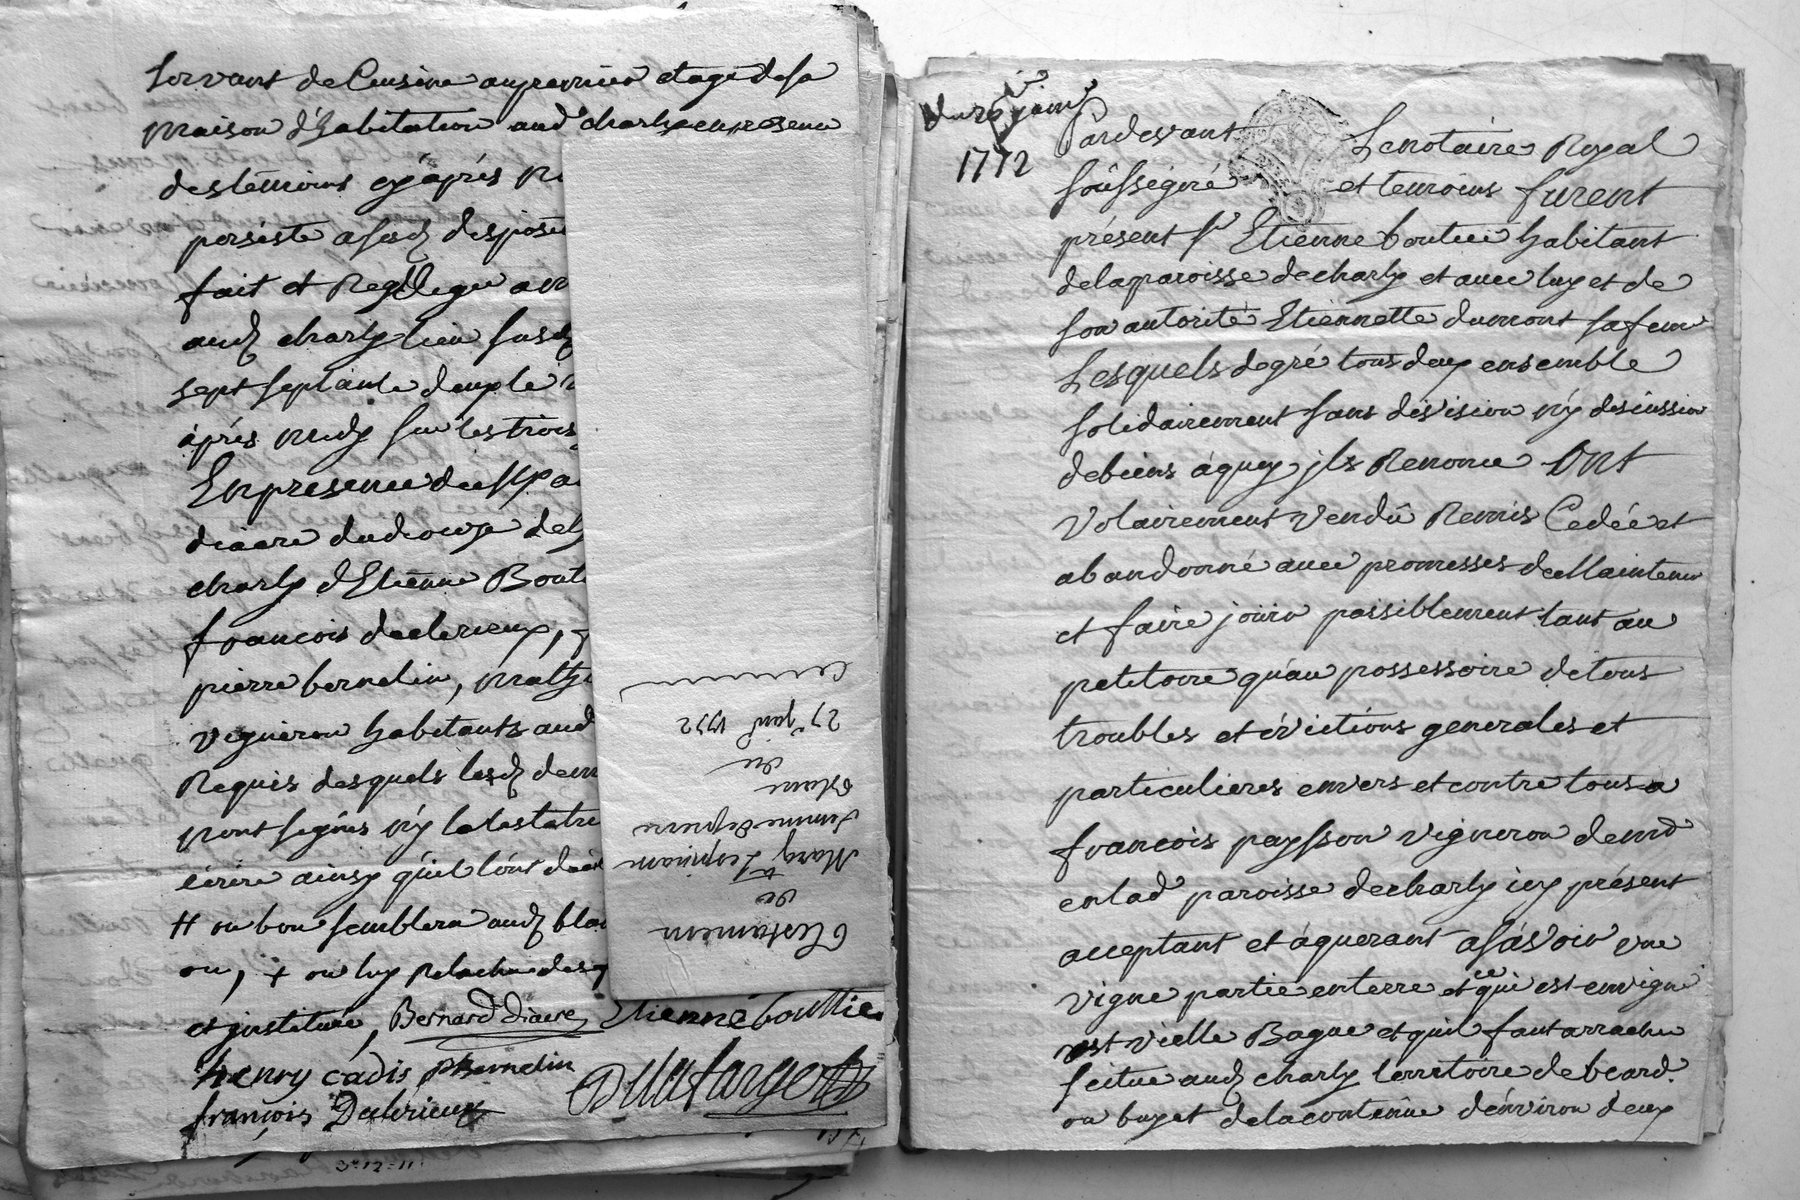 servant de Cuisine au premier etage de sa
maison d'habitation aud. charly en presence
des témoins cy après
persisté
fait et
aud. charly lieu susd.
sept septante deux le
après midy sur les trois
En presence de
diacre du diocese de
charly d'Etienne Bout
francois declerieux,
pierre bernelin, math
vigneron habitants aud
Requis desquels lesd.
n'ont signés ny la testatri
écrire ainsy qu'il l'ont
# ou bon semblera aud.
ou, + ou luy
et justitué, Bernard diacre Etienne bouttie
henry cadis pbernelin
françois Declerieux
Delafarge
Testament
de
Marg. Lespinasse
femme de pierre
blanc
du
27e janv. 1772
Du 29 janv.
1772
Pardevant Le notaire Royal
soûssigné et temoins furent
présent sr Etienne boutier habitant
de la paroisse de charly et avec luy et de
son autorité Etiennette dumont sa femme
Lesquels de gré tous deux ensemble
solidairement sans division ny discussion
de biens àquoy jls Renonce Ont
volairement vendû Remis Cedée et
abandonné avec promesses de Maintenir
et faire jouir paisiblement tant au
petitoire qu'au possessoire de tous
troubles et évictions generales et
particulieres envers et contre tous a
francois paysson vigneron dem.t
en lad. paroisse de charly icy présent
acceptant et áquerant asávoir une
vigne partie en terre et ce qui est en vigne
est vielle Bague et qu'il faut arracher
scitue aud. charly territoire de beard.
ou buyet de la contenüe d'énviron deux